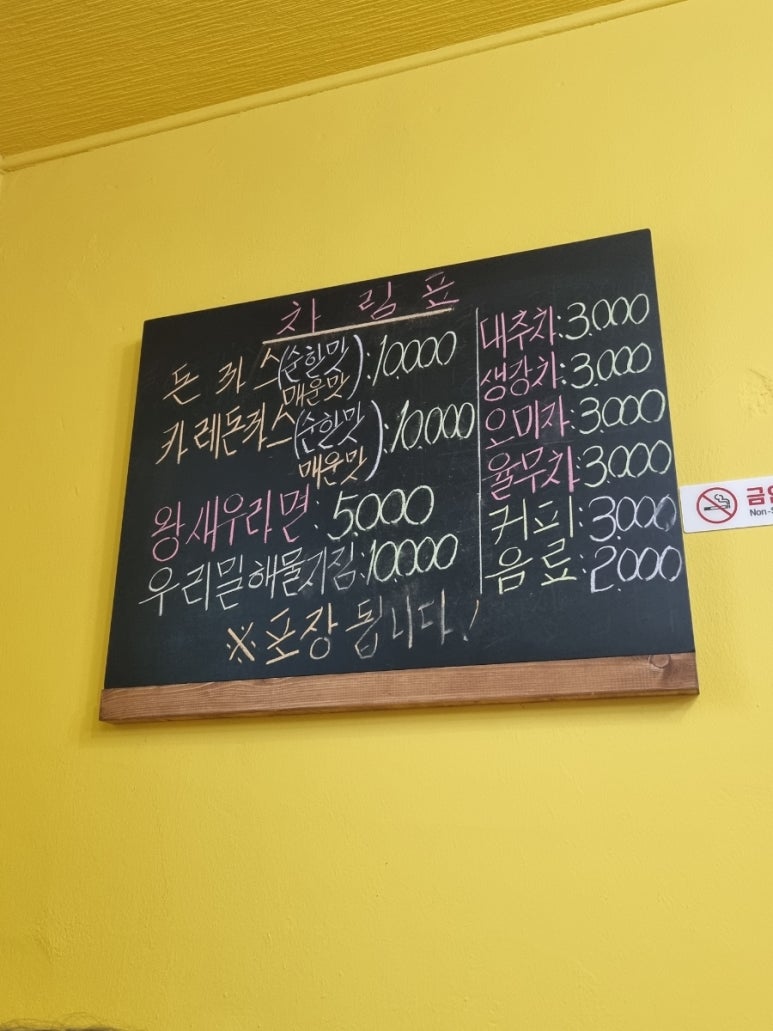 차림표
돈까스(순한맛
매운맛):10.000
카레돈까스(순한맛
매운맛):10.000
왕새우라면: 5.000
우리밀해물지짐:10.000
※포장됩니다!
대추차:3.000
생강차:3.000
오미자:3.000
율무차:3.000
커피:3.000
음료:2.000
Non-S